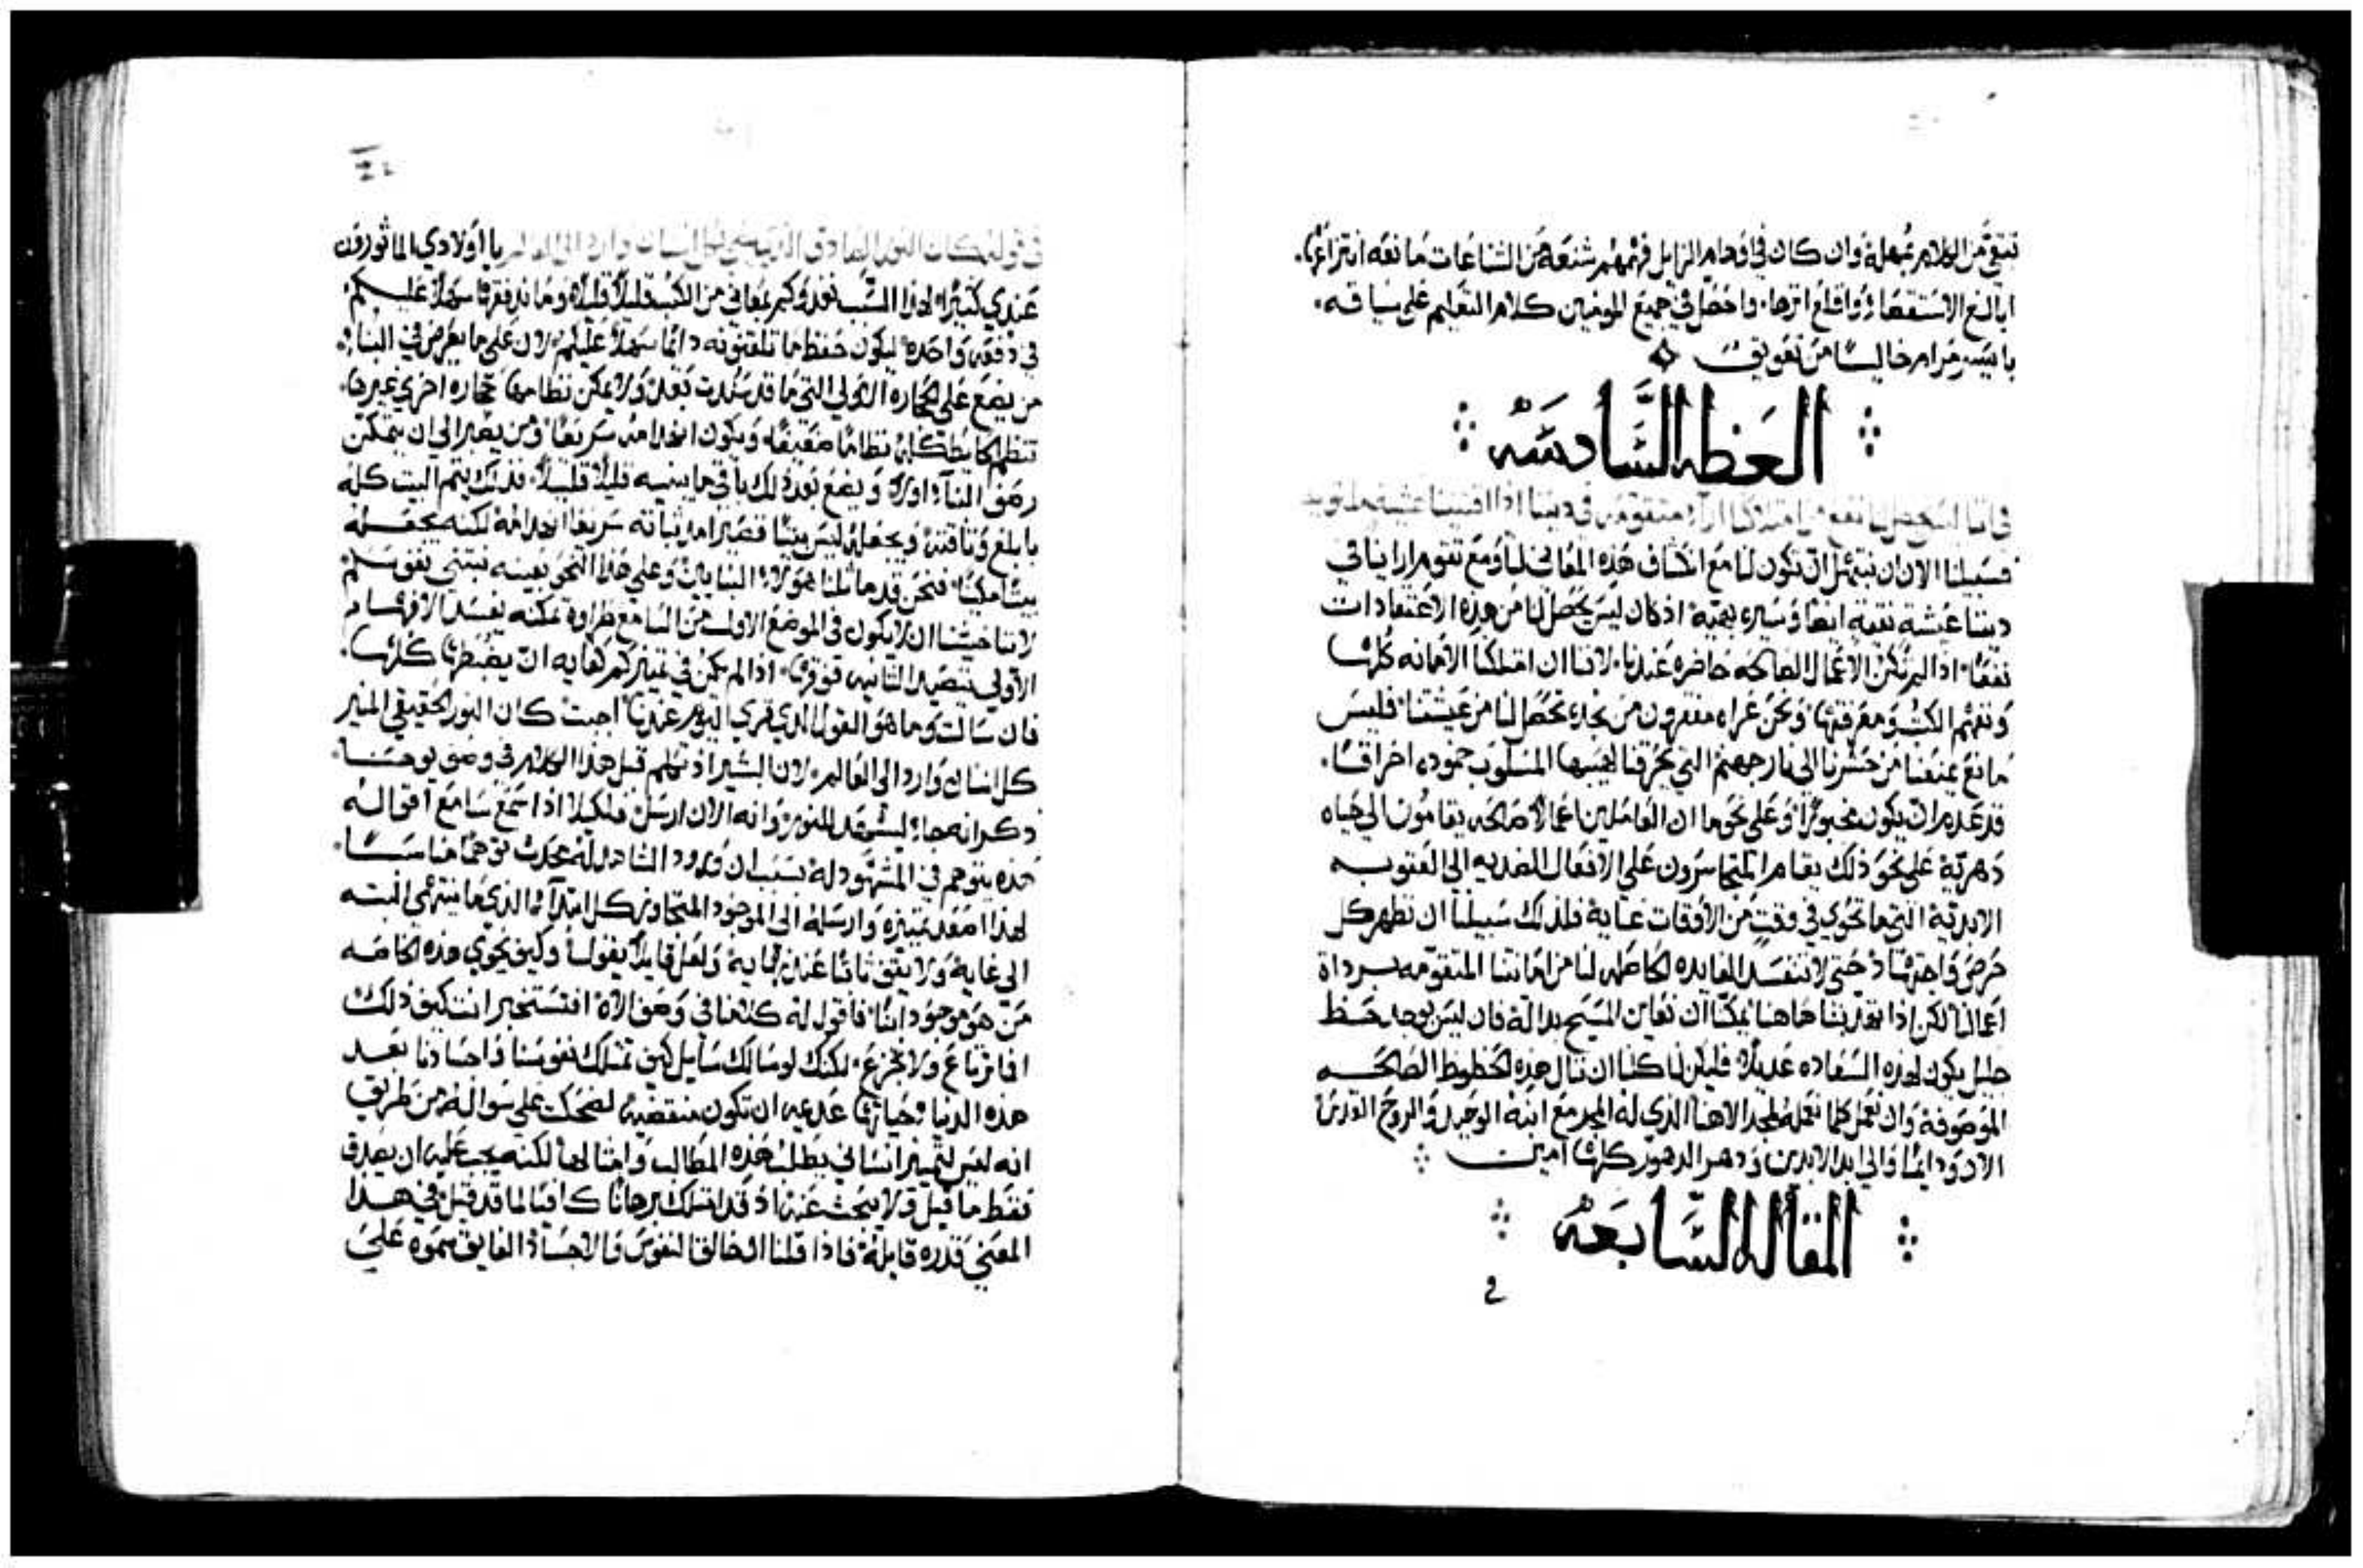 تبقى من الكلام مهمله وان كان في اوهام الزايل فهمهم شنعه من الشناعات مانعه انتزاعها.
ابالغ الاستقصاء واقلع اثرها. واحصل في جميع المومنين كلام التعليم على سياقه.
بايسر مرام خاليسًا من تعويق
العظه السَّادسَه
في اننا ليس يحصل لنا نفع من امتلاكنا اراء متقومه في ديننا اذا اقتنينا عيشة
فسبيلنا الان ان نبتهل ان تكون لنا مع انكشاف هذه المعاني لنا ومع تقوم ارائنا في
ديننا عيشة نقية ايضًا وسيره بهيه اذ كان ليس يحصل لنا من هذه الاعتقادات
نفعًا. اذا لم تكن الاعمال الصالحه حاضره عندنا. لاننا ان امتلكنا الامانه كلها
وتفهم الكتب ومعرفتها ونحن عراه مقفرون من نجده تحصل لنا من عيشتنا. فليس
مانع يمنعنا من حشرنا الى نار جهنم التي تحرقنا بلهيبها المسلوب خموده احراقًا.
قد عدم ان يكون مخبوًا. وعلى نحو ما ان العاملين اعمالاً صالحه يقامون الى حياه
دهرية على نحو ذلك يقام المتجاسرون على الافعال الضديه الى العقوبه
الابدية التي ما تحوي في وقتٍ من الاوقات غاية فلذلك سبيلنا ان نظهر كل
حرص واجتهاد حتى لا تنفسد الفايده الحاصله لنا من امانتنا المتقومه برداة
اعمالنا لكن اذا تهذبنا هاهنا يمكننا ان نعاين المسيح بدالة فان ليس يوجد حظ
جليل يكون لهذه السعاده عديلاً. فليكن لنا كلنا ان ننال هذه الحظوظ الصالحه
الموصوفة وان نعمل كلما نعمله لمجد الاهنا الذي له المجد مع ابنه الوحيد والروح القدس
الان ودايمًا والى ابد الابدين ودهر الدهور كلها امين
المقاله السَّابعَه
في
في قوله كان النور الصادق الذي يضي لكل انسان وارد الى العالم يا اولادي الماثورون
عندي كثيرًا. لهذا السبب نغدوكم بمعاني من الكتب قليلاً قليلاً وما ندفقها سهلاً عليكم.
في دفعه واحده. ليكون حفظ ما تلقنونه دائمًا سهلاً عليكم. لان على ما يعرض في البناء.
من يضع على الحجاره الاولى التي ما قد سدت بعد ولا يمكن نظامها حجاره اخرى غيرها.
تنظم الحايط كله نظامًا ضعيفًا. ويكون انهدامه سريعًا. ومن يصبر الى ان يتمكن
رصف البناء اولاً ويضع بعد ذلك باقي ما يبنيه قليلاً قليلاً. فذلك يتمم البيت كله
بابلغ وثاقته ويجعله ليس بيتًا قصيرًا مده ثباته سريعًا انهدامه لكنه يجعله
بيتًا مكينًا. فنحن قد ماثلنا هولاء البنايين وعلى هذا النحو بعينه نبتني نفوسكم
لاننا خشينا ان لا يكون في الموضع الاول من السامع طراوة تمكنه تفسد الافهام
الاولى بتنضيد الثانيه فوقها. اذا لم يكن في تمييزكم كفايه ان يضبطها كلها.
فان سالت وما هو القول الذي قري اليوم عندنا. اجبت كان النور الحقيقي المنير
كل انسان وارد الى العالم. لان البشير اذ تكلم قبل هذا الكلام في وصف يوحنا.
ذكر انه جاء ليشهد للنور. وانه الان ارسل. فلكيلا اذا سمع سامع اقواله
هذه يتوهم في المشهود له بسبب ان ورود الشاهد له محدث توهمًا مناسبًا.
لهذا اصعد تمييزه وارسله الى الموجود المتجاوز كل ابتداء الذي ما ينتهي البته
الى غاية ولا يقف ثابتًا عند نهاية. ولعل قايلاً يقول لنا وكيف تحوي هذه الخاصه
من هو موجود ابنًا. فاقول له كلامنا في وصف الاه افتستخبر انت كيف ذلك
افما ترتاع ولا تجزع. لكنك لو سالك سايل كيف تمتلك نفوسنا واجسادنا بعد
هذه الدنيا وحياتها عديمه ان تكون منقضيه لضحكت على سواله من طريق
انه ليس لتمييز انساني يطلب هذه المطالب وامثالها لكنه يجب عليه ان يصدق
فقط ما قيل ولا يبحث عنه اذ قد امتلك برهانًا كافيًا لما قد قيل في هذا
المعنى قدره قايله. فاذا قلنا ان خالق النفوس والاجساد الفايق سموه على